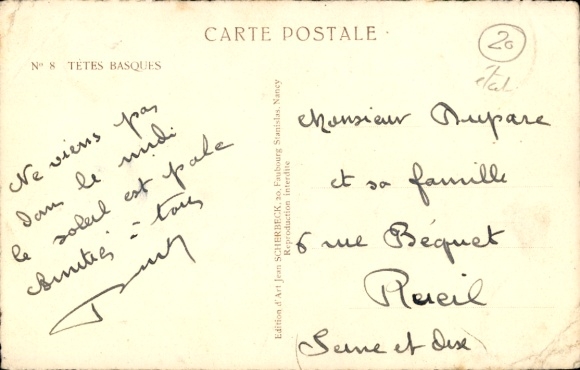 CARTE POSTALE
Nº 8 TÊTES BASQUES
20
Ne viens pas
dans le midi
le soleil est pale
Amitiés à tous
Monsieur Duparc
et sa famille
6 rue Béquet
Rueil
Seine et Oise
Edition d'Art Jean SCHERBECK, 20, Faubourg Stanislas, Nancy
Reproduction interdite